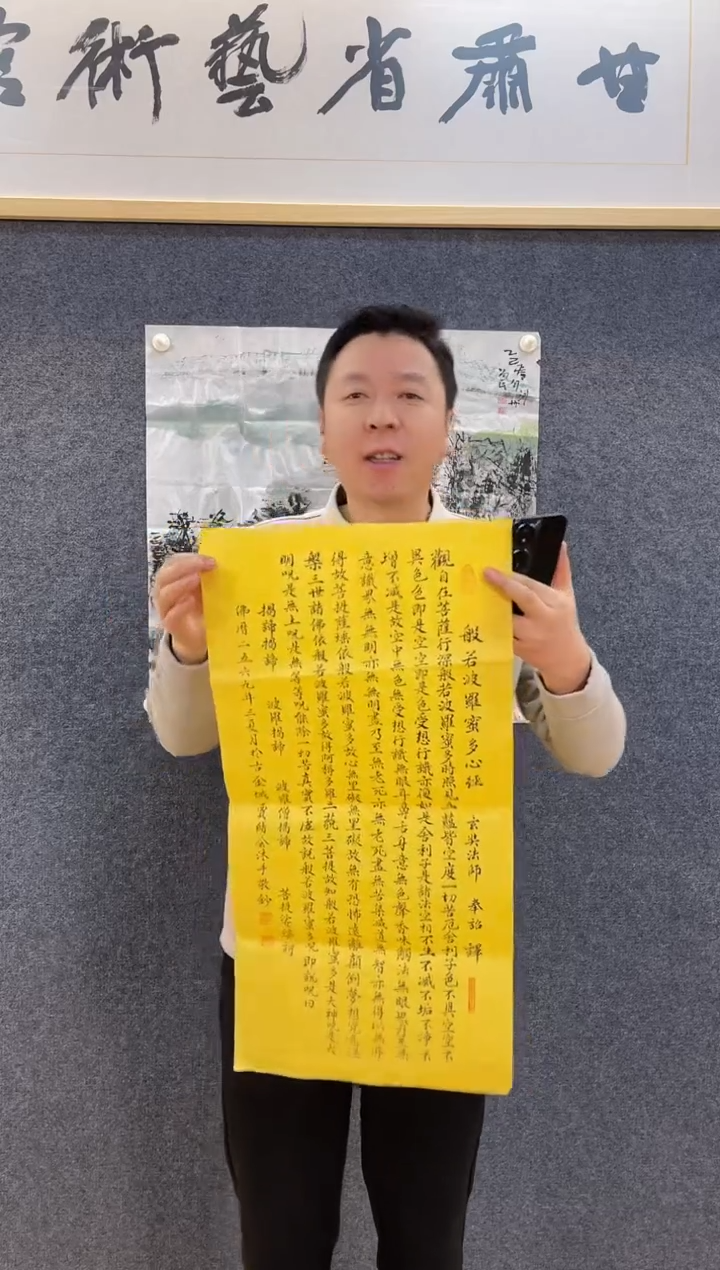 甘肅省藝術
般若波羅蜜多心經 玄奘法師 奉詔 譯
觀自在菩薩行深般若波羅蜜多時照見五蘊皆空度一切苦厄舍利子色不異空空不
異色色即是空空即是色受想行識亦復如是舍利子是諸法空相不生不滅不垢不淨不
增不減是故空中無色無受想行識無眼耳鼻舌身意無色聲香味觸法無眼界乃至無
意識界無無明亦無無明盡乃至無老死亦無老死盡無苦集滅道無智亦無得以無所
得故菩提薩埵依般若波羅蜜多故心無罣礙無罣礙故無有恐怖遠離顛倒夢想究竟涅
槃三世諸佛依般若波羅蜜多故得阿耨多羅三藐三菩提故知般若波羅蜜多是大神咒是大
明咒是無上咒是無等等咒能除一切苦真實不虛故說般若波羅蜜多咒即說咒曰
揭諦揭諦 波羅揭諦 波羅僧揭諦 菩提薩婆訶
佛曆二五六九年三夏月於古金城沐手敬鈔